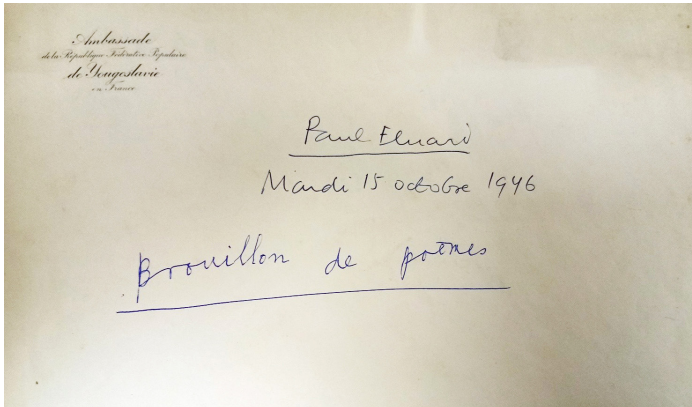 Ambassade
de la République Fédérative Populaire
de Yougoslavie
en France
Paul Eluard
Mardi 15 octobre 1946
Brouillon de poèmes